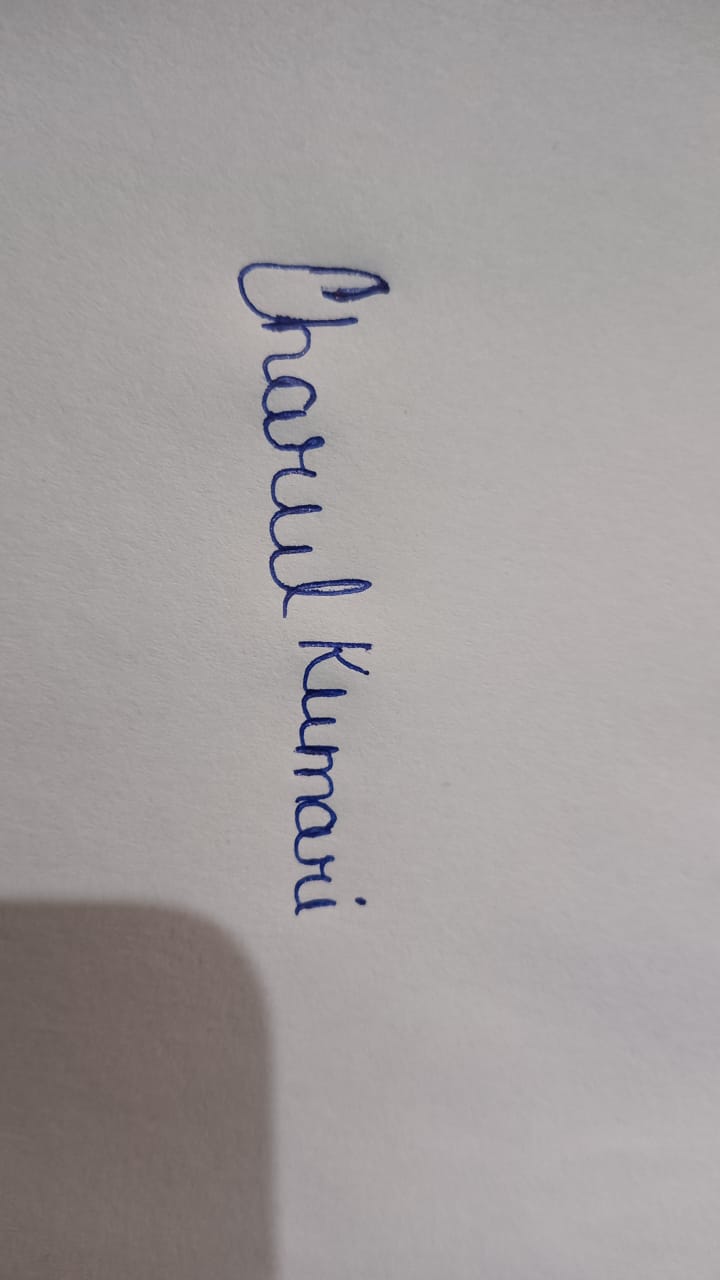 Charul Kumari